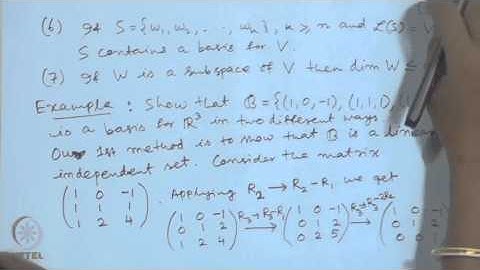 (6) If S = {w₁, w₂, ..., wₖ}, k ⩾ n and L(S) = V
S contains a basis for V.
(7) If W is a subspace of V then dim W ≤
Example : Show that B = {(1, 0, -1), (1, 1, 1), (1,
is a basis for ℝ³ in two different ways
Our 1st method is to show that B is a linear
independent set. Consider the matrix
(1 0 -1; 1 1 1; 1 2 4) . Applying R₂ → R₂ - R₁ we get
(1 0 -1; 0 1 2; 1 2 4) R₃→R₃-R₁ → (1 0 -1; 0 1 2; 0 2 5) R₃→R₃-2R₂ → (1 0 -1; 0 1 2; 0 0 1